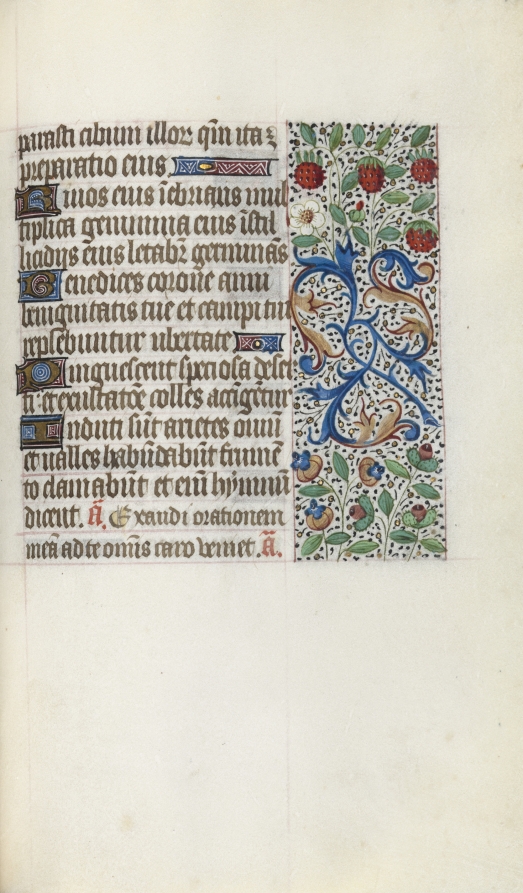 parasti cibum illoꝝ qm̄ ita ꝫ
preparatio eius
Riuos eius īebrians mul
tiplica genimina eius ī stil
licidijs eius letabr̄ germinās
Benedices corone anni
benignitatis tue et campi tui
replebuntur ubertate
Pinguescent speciosa deser
ti et exultatōe colles accīgentur
Induti sūt arietes ouiū
et ualles habūdabūt frumē
to clamabūt et enī hymnū
dicent. ā. Exaudi orationem
meā ad te omīs caro veniet. ā.